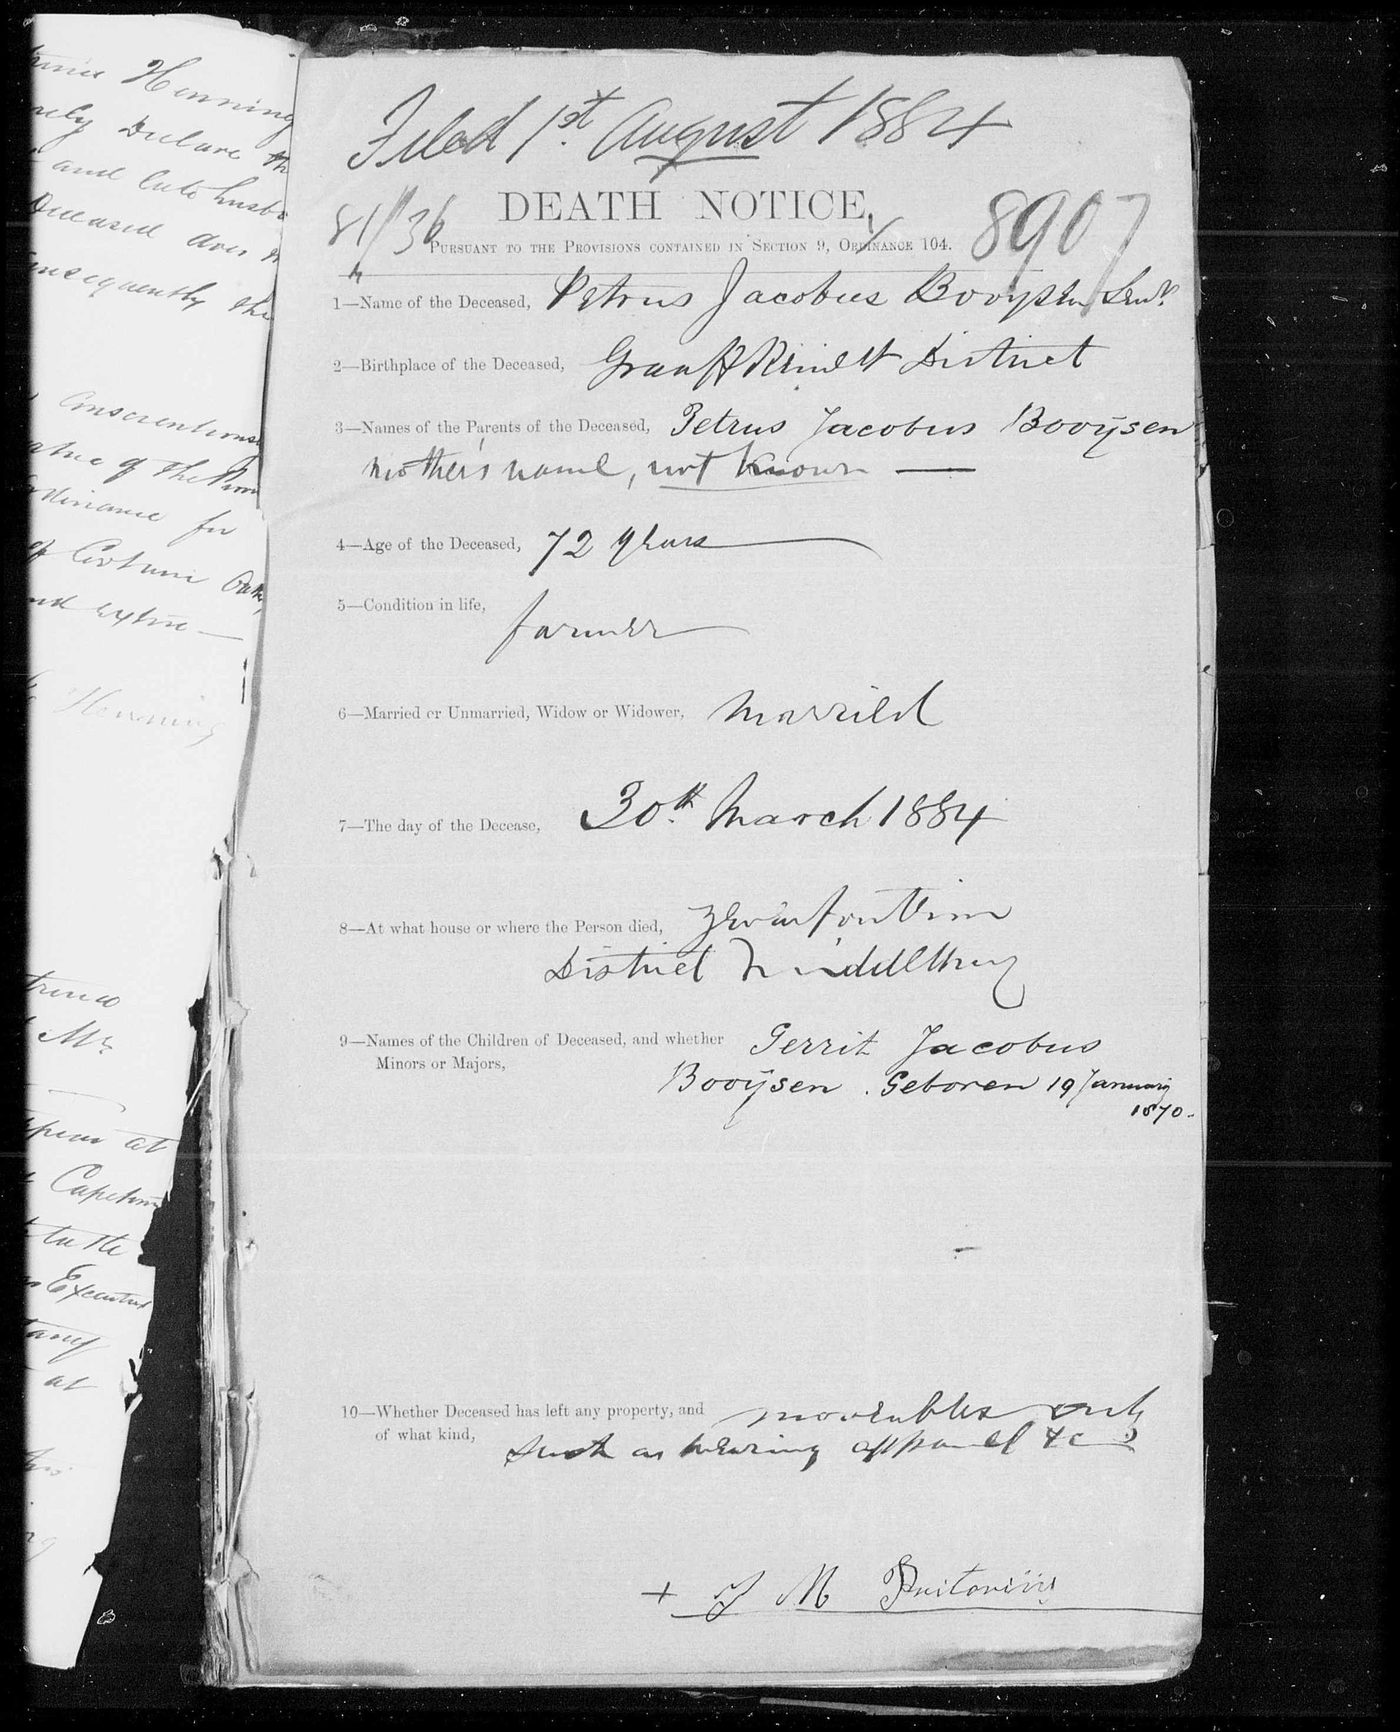 Henning
Declare th
and late husb
Deceased does
Consequently the
Conscientious
of the
Ordinance for
of
and
Henning
Mr
at
Capetown
to the
Executrix
at
Filed 1st. August 1884
81/36
DEATH NOTICE,
8907
Pursuant to the Provisions contained in Section 9, Ordinance 104.
1—Name of the Deceased, Petrus Jacobus Booysen Senr.
2—Birthplace of the Deceased, Graaff Reinett District
3—Names of the Parents of the Deceased, Petrus Jacobus Booÿsen
mother's name, not known —
4—Age of the Deceased, 72 years
5—Condition in life, farmer
6—Married or Unmarried, Widow or Widower, Married
7—The day of the Decease, 30th. March 1884
8—At what house or where the Person died,
District Middelburg
9—Names of the Children of Deceased, and whether Gerrit Jacobus
Minors or Majors, Booÿsen. Geboren 19 January
1870.
10—Whether Deceased has left any property, and moveables only
of what kind, such as wearing apparel &c
+ J M